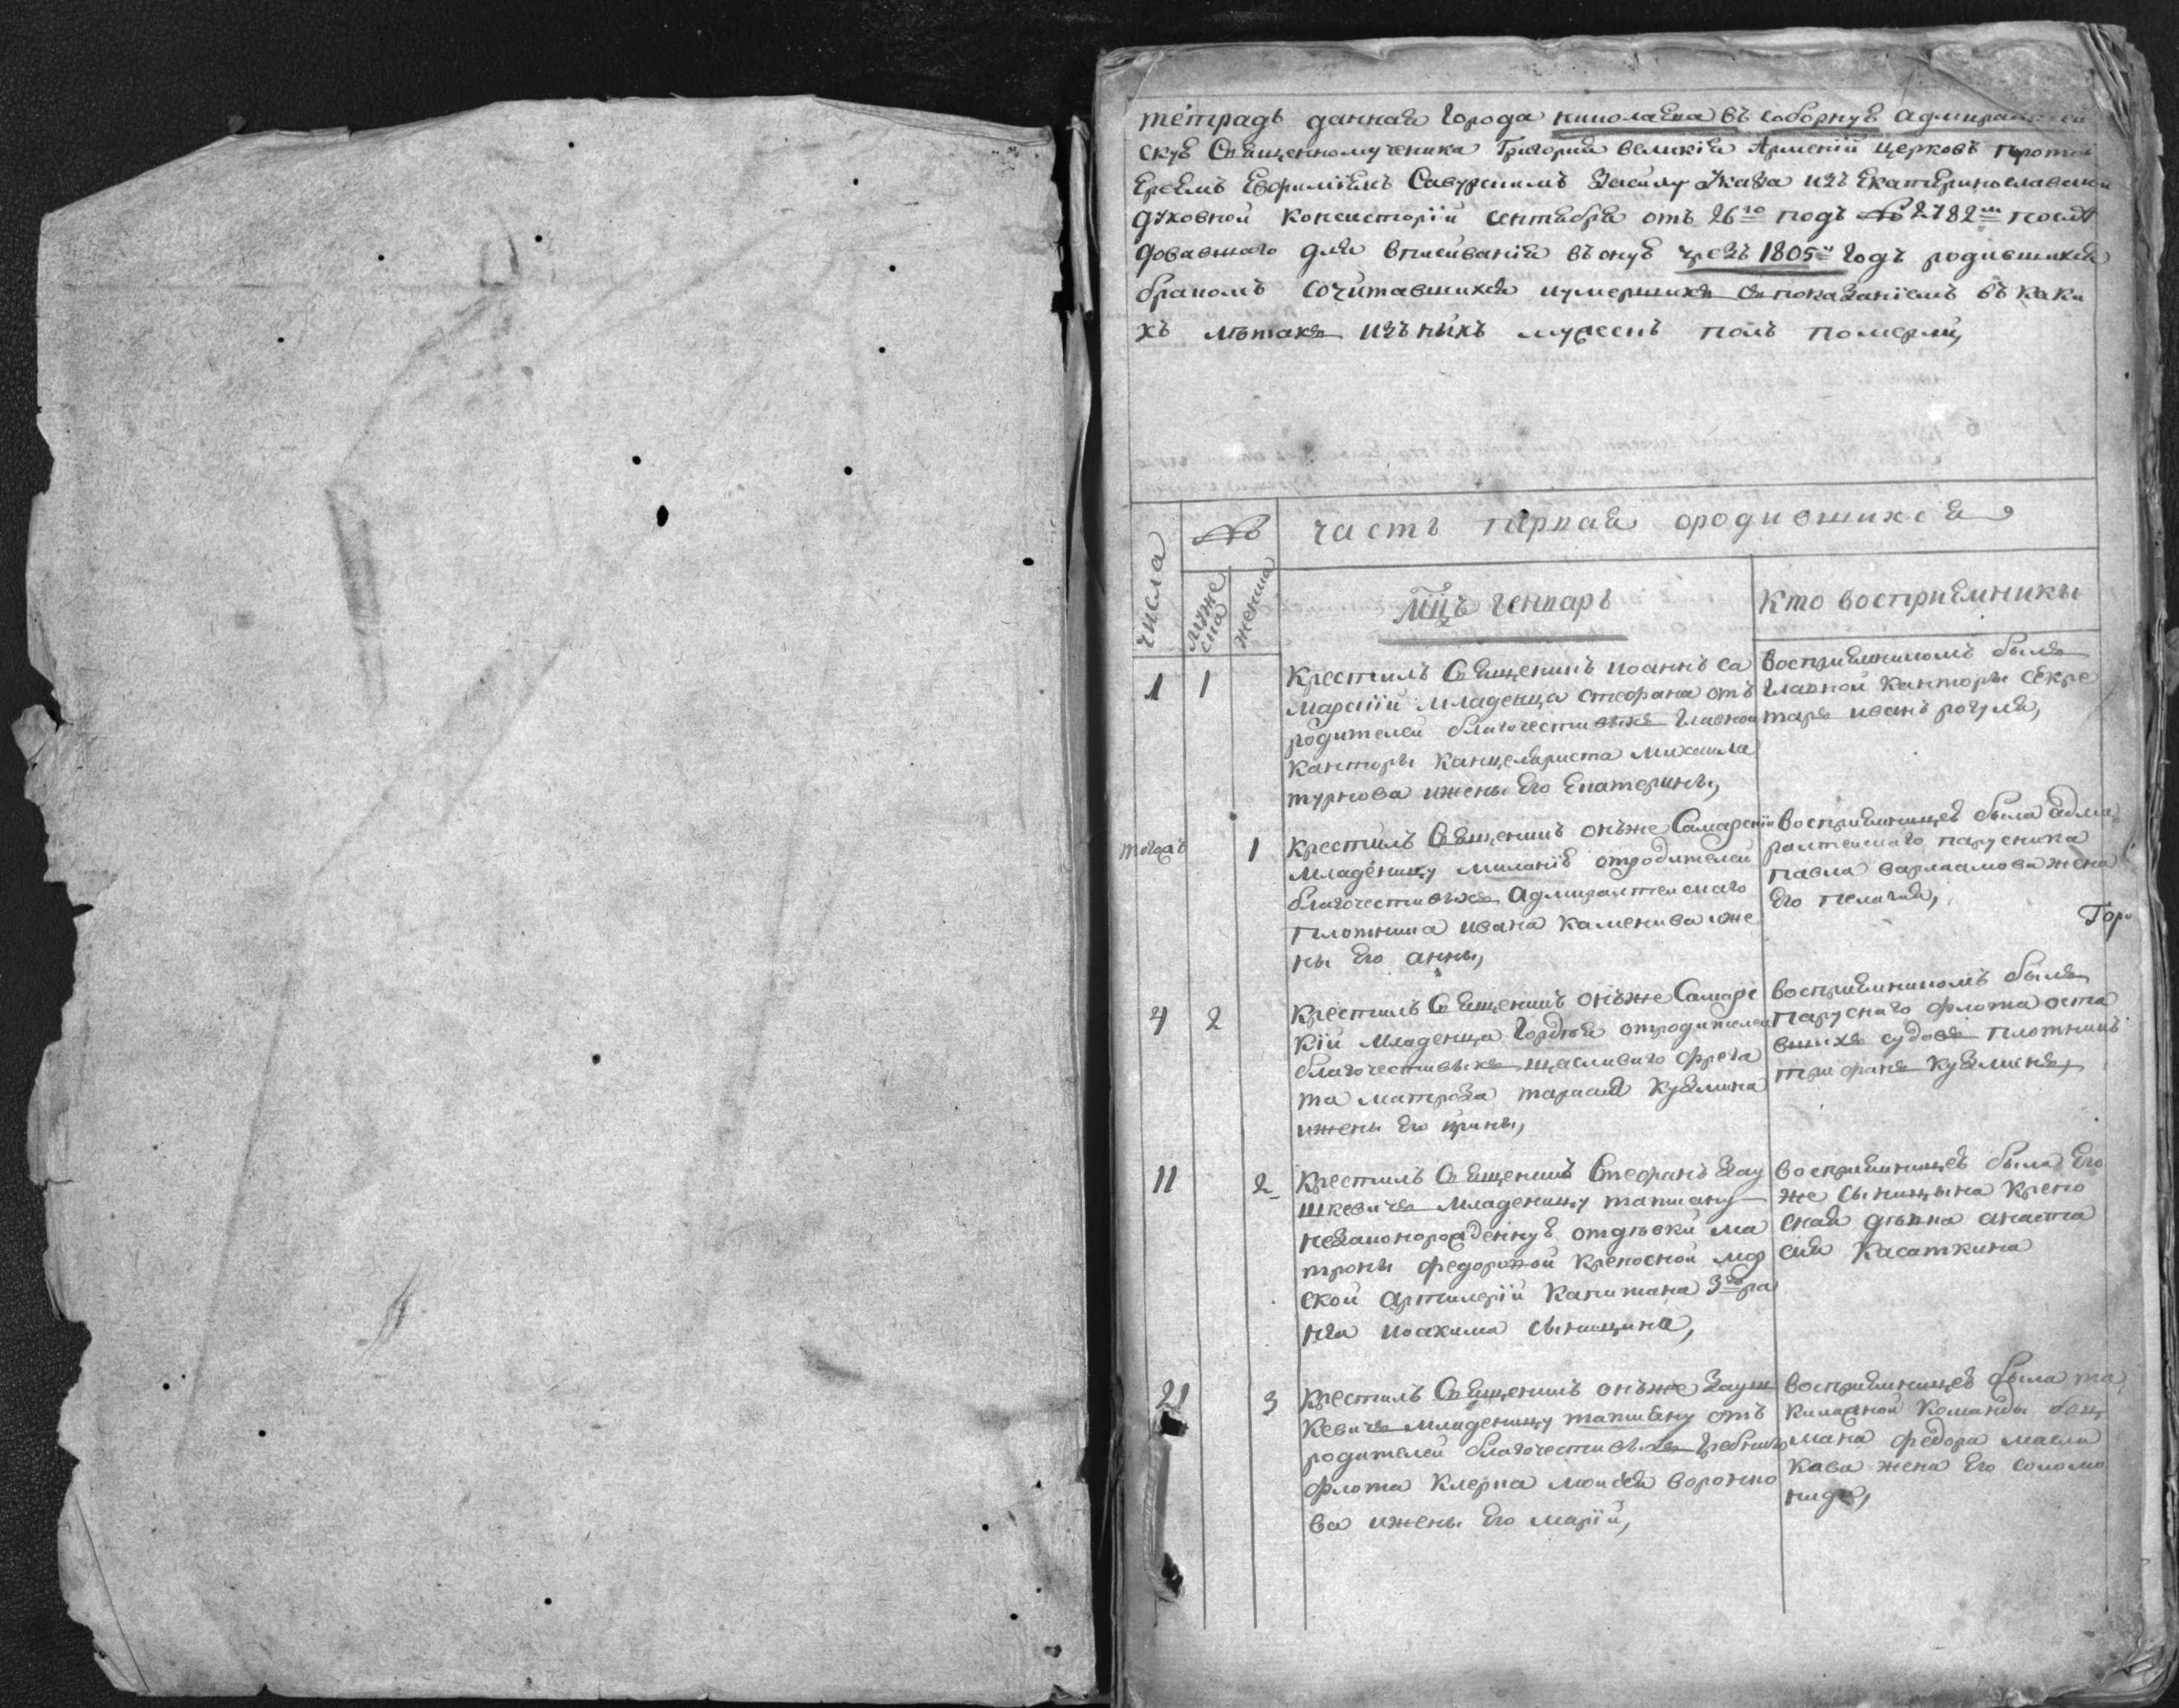 тетрадь данная города николаева въ соборнуѣ адмиралтей
скуѣ Священномученика Григория великия Армениі церковь прото
Ереемъ Евфимиемъ Савурскимъ Засилу Указа изъ Екатеринославской
духовной Консисторіи сентября отъ 26го подъ № 2782м послѣ
довавшаго для вписиванія въ онуѣ чрезъ 1805й годъ родившихся
бракомъ сочитавшихся иумершихъ спо показаніемъ въ каки
хъ лѣтахъ изъ нихъ мужескъ полъ померли,
числа
№
часть первая ородившихся
муже
ска
женска
Мцъ генваръ
Кто восприемники
1 1
Крестилъ Священикъ иоаннъ са
марскій младенца стефана отъ
родителей благочестивыхъ главной
канторы канцеляриста михаила
туркова ижены Его Екатерины,
восприемникомъ былъ
главной канторы секре
таръ иванъ рогуля,
тогожъ 1
Крестилъ Священикъ онъже Самарскій
младеницу миланіѣ отродителей
благочестивыхъ адмиралтейскаго
плотника ивана каменива иже
ны Его анны,
восприемницеѣ была адми
ралтейскаго парусника
павла варлаамова жена
Его пелагия,
Гор
4 2
Крестилъ Священикъ онъже Самарс
кій младенца гордѣя отродителей
благочестивыхъ щасливаго фрега
та матроза тарасия кузмина
ижены Его ирины,
восприемникомъ былъ
паруснаго флота оста
вшихъ судовъ плотникъ
трифанъ кузминъ,
11 2
Крестилъ Священикъ Стефанъ Зау
шкевичъ младеницу татиану
незаконорожденнуѣ отдѣвки ма
троны федоровой крепосной мор
ской артилеріи капитана 3го ра
нга иоакима сыницина,
восприемницеѣ была Его
же сыницына крепо
сная дѣвка анаста
сия Касаткина
21 3
Крестилъ Священикъ онъже Зауш
кевичъ младеницу татиану отъ
родителей благочестивыхъ гребнаго
флота клерка моисея воронко
ва ижены Его маріи,
восприемницеѣ была та
килажной команды боц
мана федора масли
кава жена Его соломо
нида,